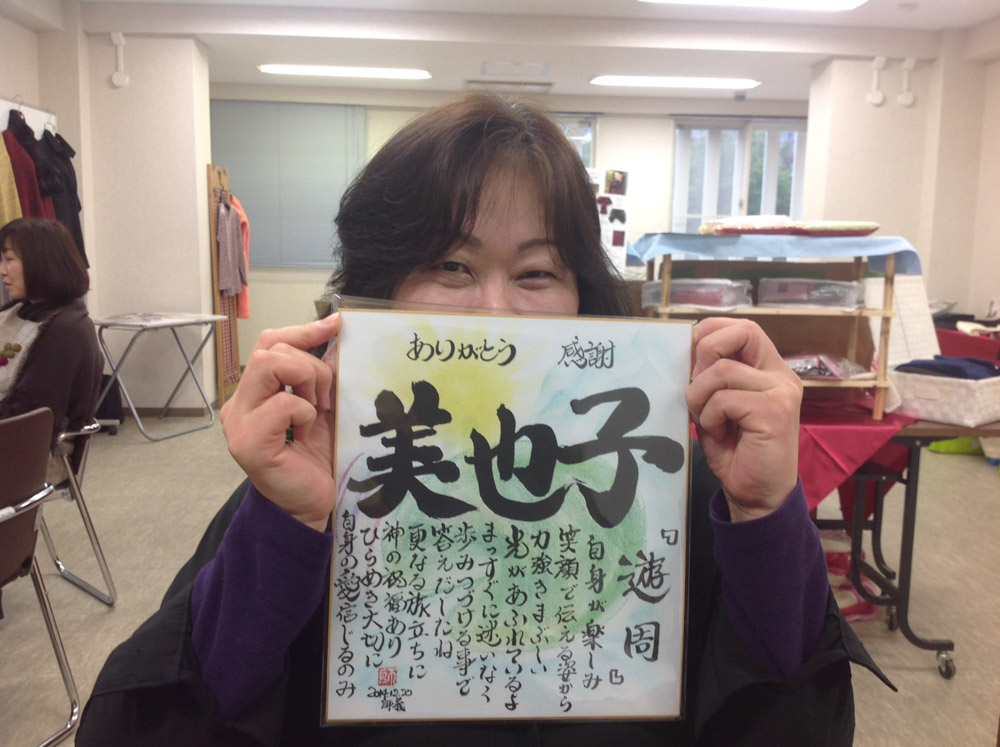 ありがとう 感謝
美也子
『遊周』
自身が楽しみ
笑顔で伝える姿から
力強きまぶしい
光があふれているよ
まっすぐに迷いなく
歩みつづける事で
答えだしたね
更なる旅立ちに
神の祝福あり
ひらめき大切に
自身の愛信じるのみ
2014.12.20